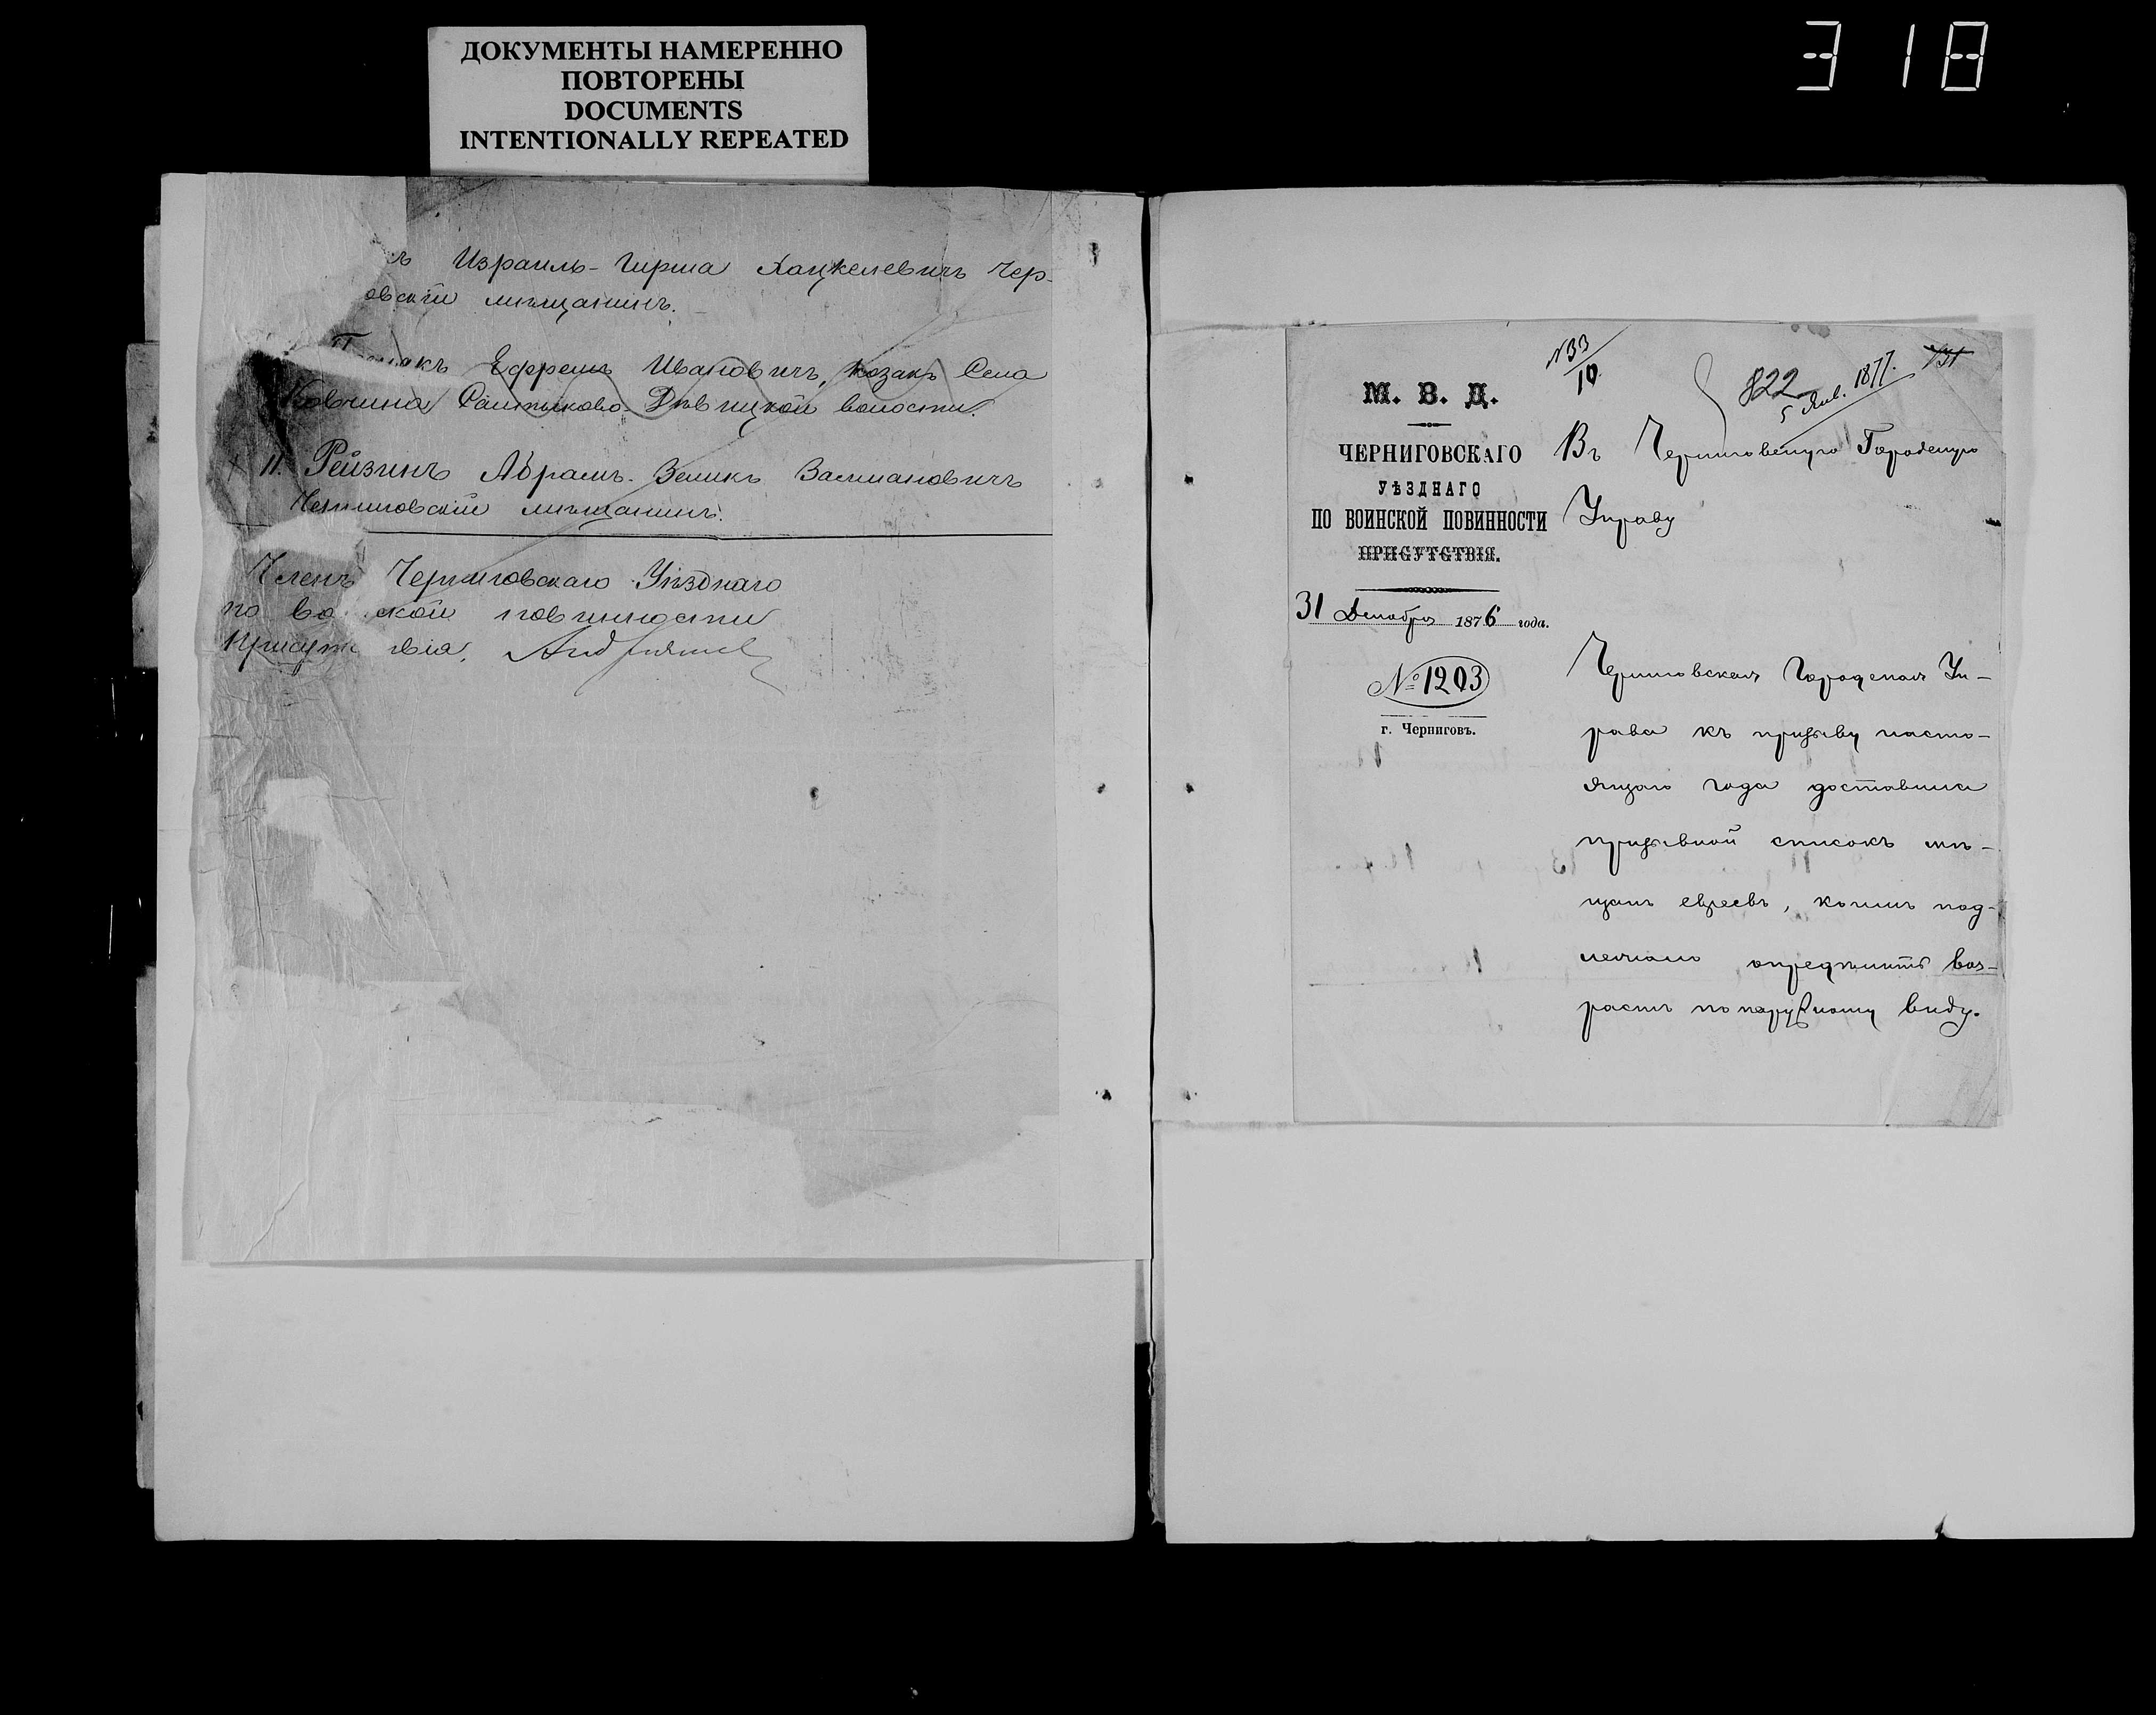 ДОКУМЕНТЫ НАМЕРЕННО
ПОВТОРЕНЫ
DOCUMENTS
INTENTIONALLY REPEATED
318
ъ Израиль-Гирша Хацкелевичъ Чер-
овскій мѣщанинъ.
Ефремъ Ивановичъ, козакъ Села
Ковчина Салтыково-Дѣвицкой волости.
11. Рейзинъ Абрамъ-Зеликъ Залмановичъ
Черниговскій мѣщанинъ.
Членъ Черниговскаго Уѣзднаго
по во скои повинности
Присутс твія,
№33
10
822
5 Янв. 1877.
131
М. В. Д.
ЧЕРНИГОВСКАГО
УѢЗДНАГО
ПО ВОИНСКОЙ ПОВИННОСТИ
ПРИСУТСТВІЯ.
31 Декабря 1876 года.
№ 1203
г. Черниговъ.
Въ Черниговскую Городскую
Управу
Черниговская Городская Уп-
рава къ призыву насто-
ящаго года доставила
призывной списокъ мѣ-
щанъ евреевъ, коимъ под-
лежало опредѣлить воз-
растъ по наружному виду.